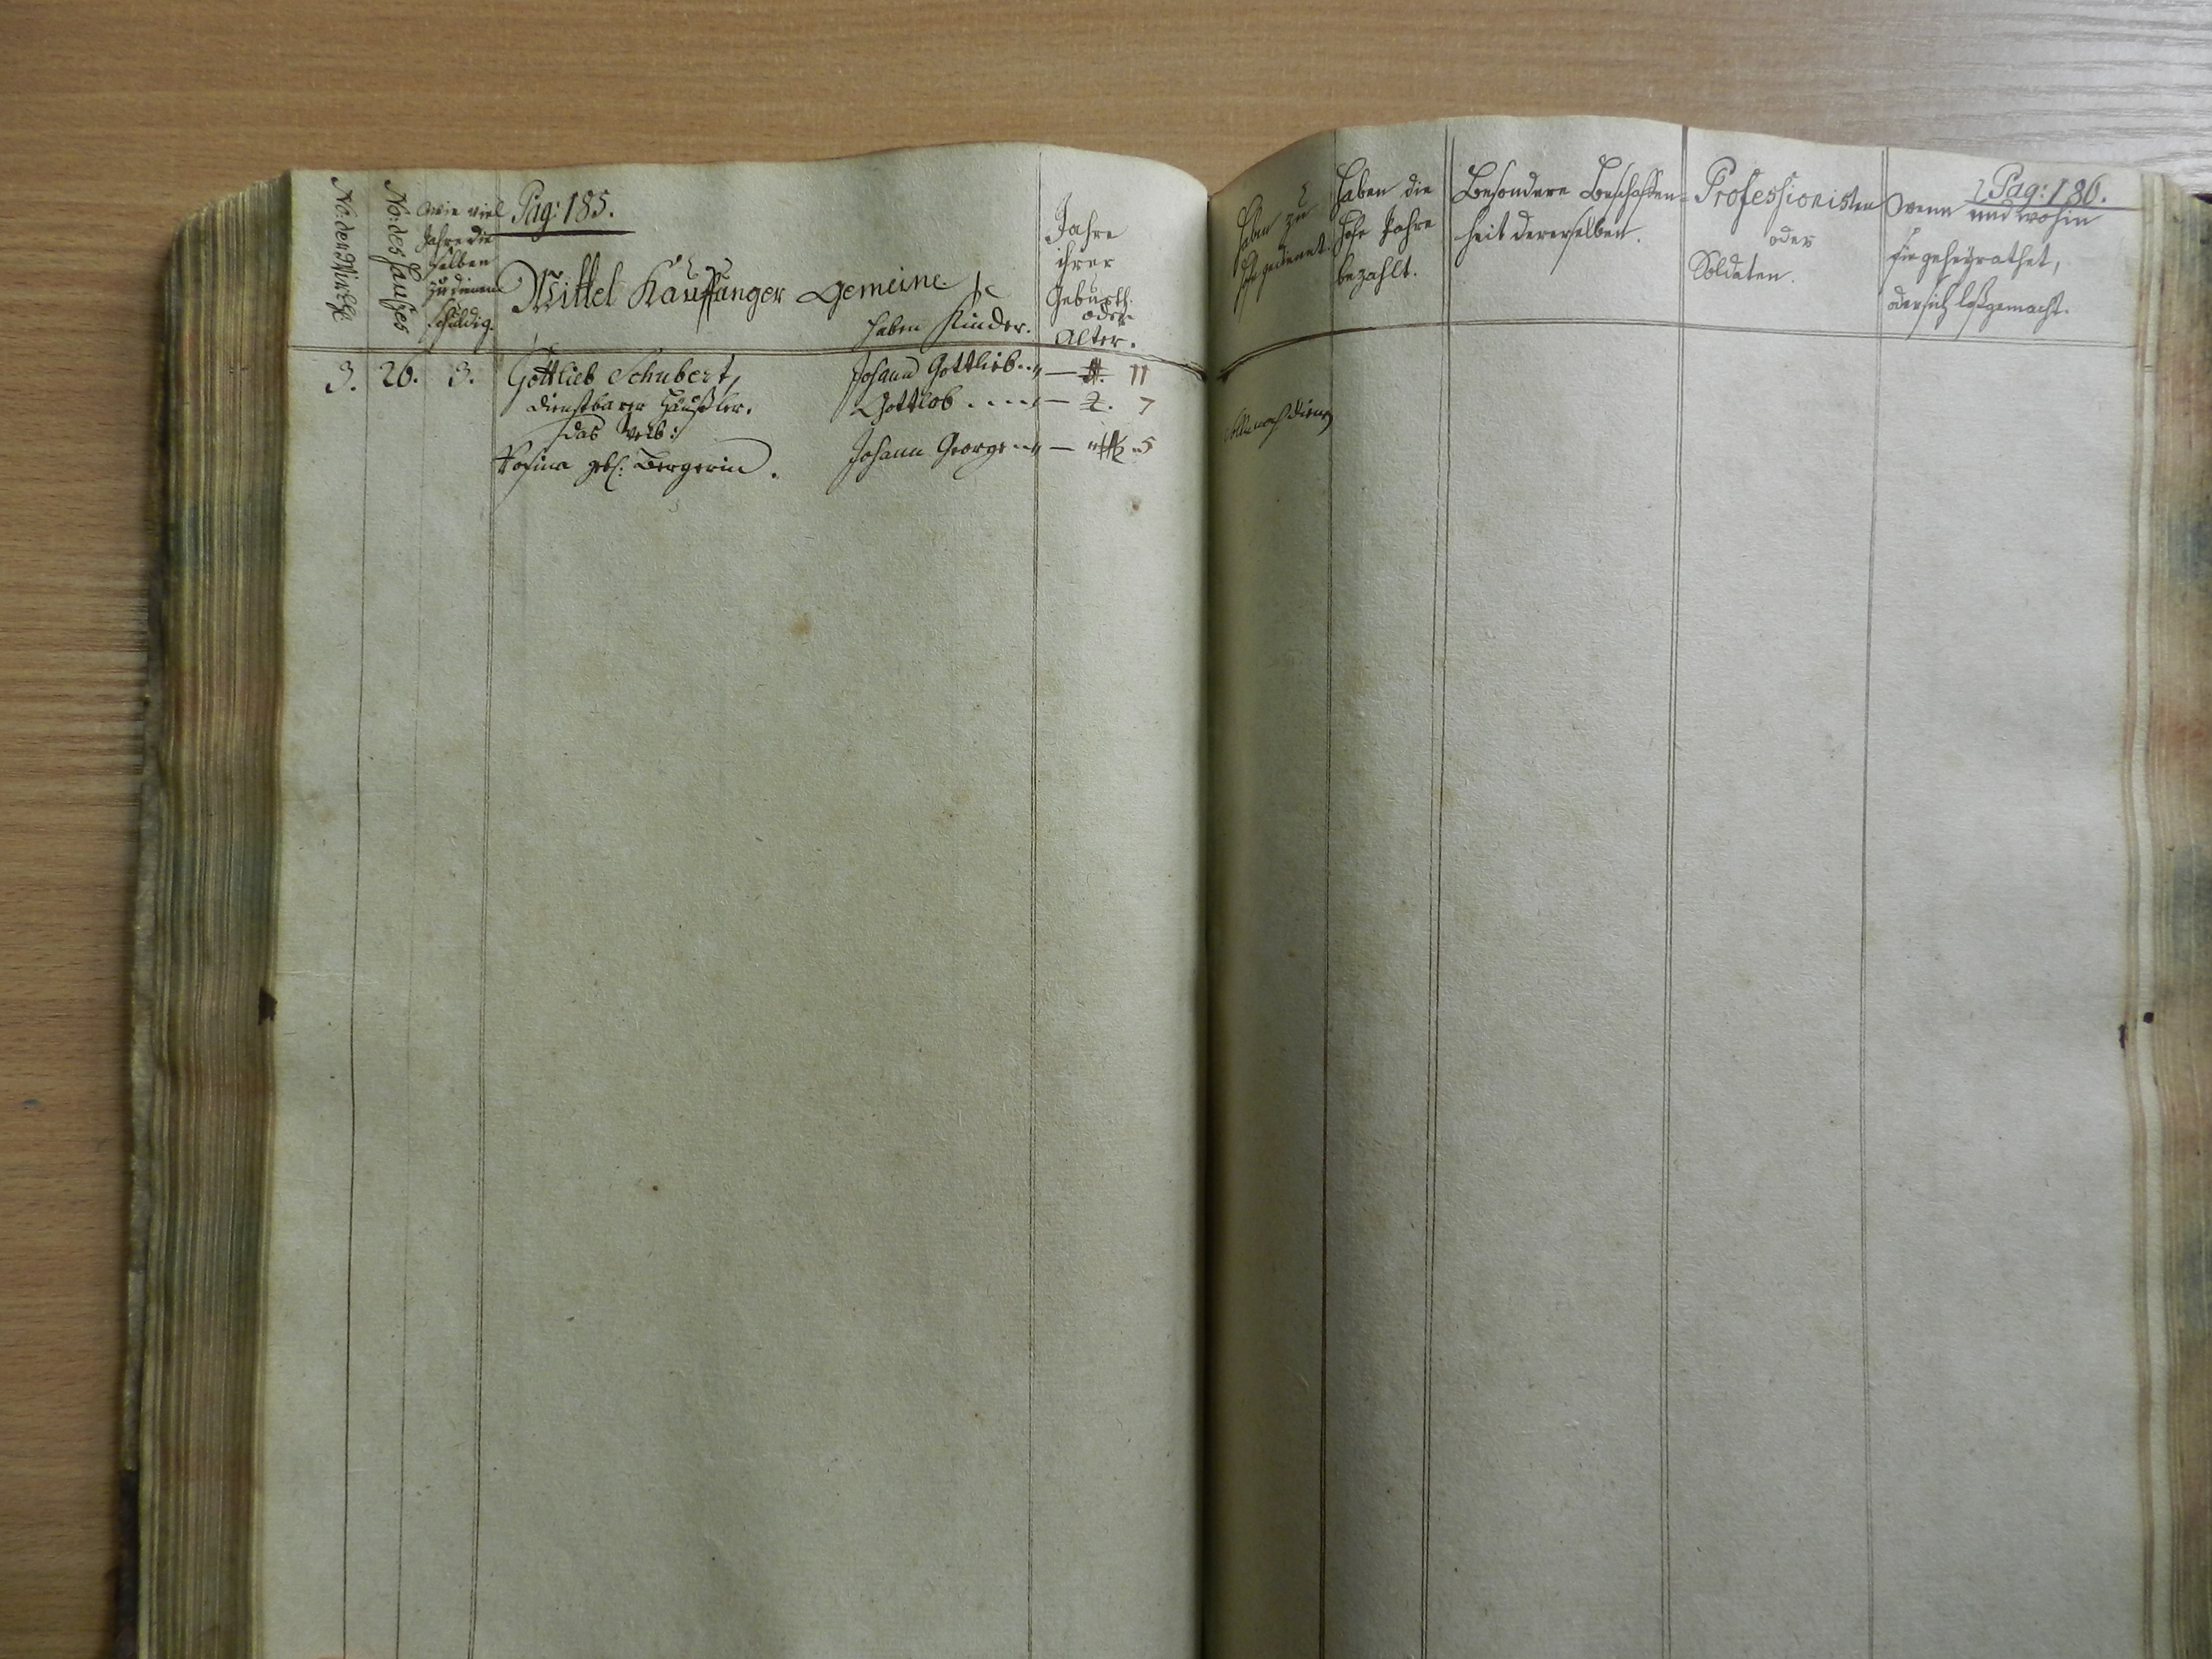 No: der Wirthe
No: des Hauses
Wie viel
Jahre die
selben
zu dienen
schuldig.
Pag: 185.
Mittel Kauffunger Gemeine.
haben Kinder.
Jahre
ihrer
Geburth.
oder
Alter.
3. 26. 3. Gottlieb Schubert, Johann Gottlieb 11
dienstbarer Häußler. Gottlob 2. 7
das Weib:
Rosina geb: Bergerin. Johann George 5
Pag: 186.
haben zu
Hofe gedienet
haben die
Hofe Jahre
bezahlt.
Besondere Beschaffen-
heit dererselben.
Professionisten
oder
Soldaten.
wenn und wohin
sie geheyrathet,
oder sich loßgemacht.